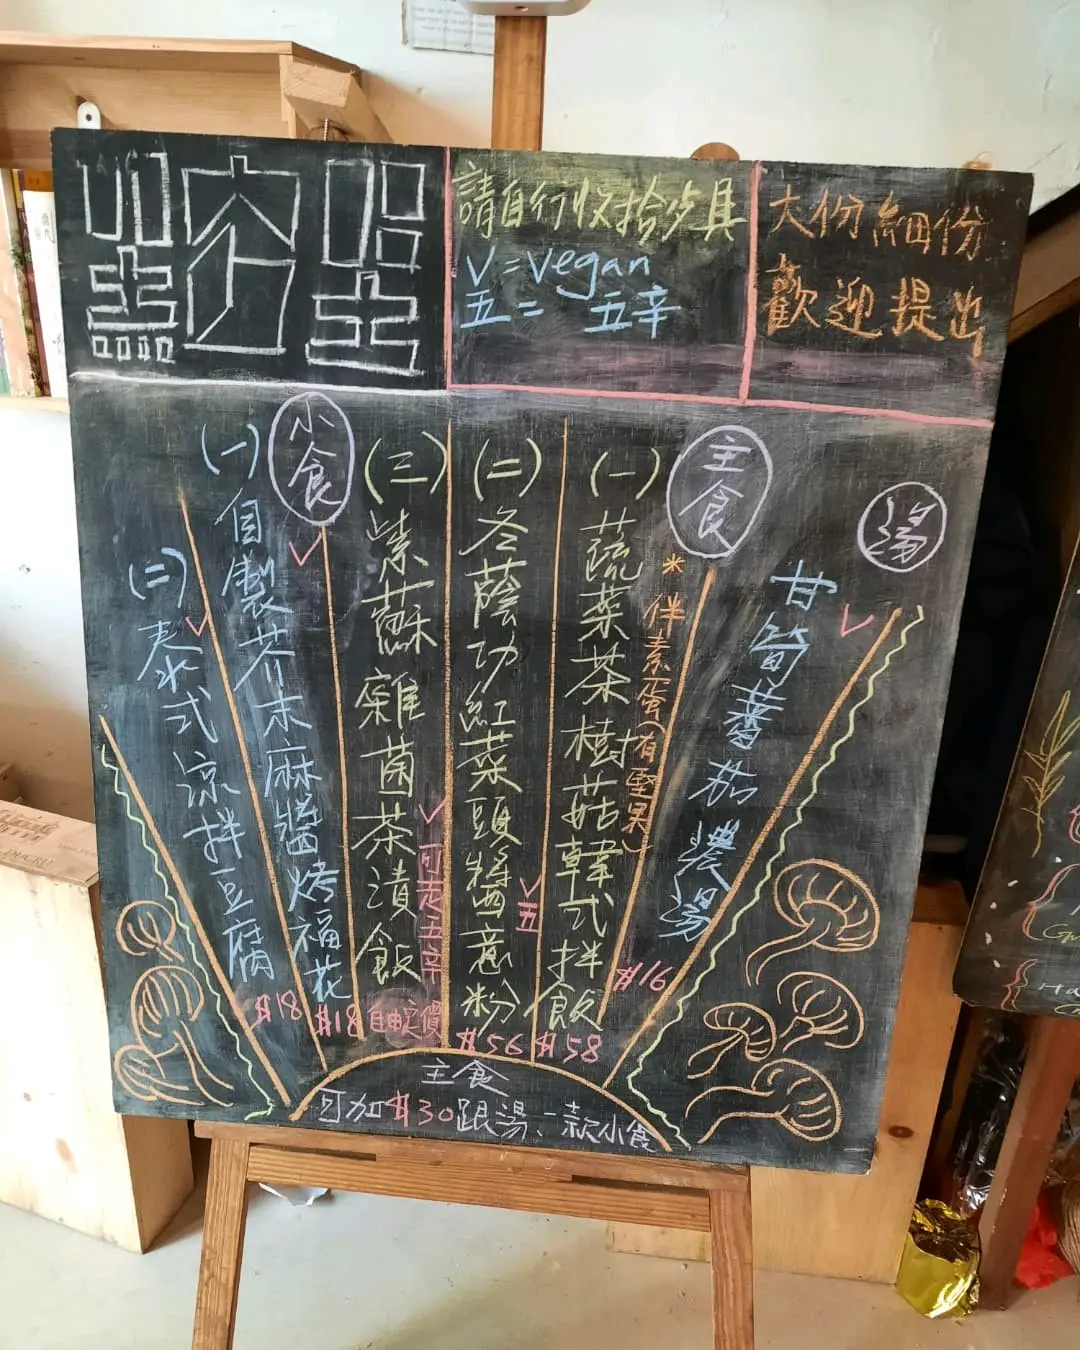 黑窗里
請自行收拾歺具
V = Vegan
五 = 五辛
大份細份
歡迎提出
湯
甘筍蕃茄濃湯
V
$16
主食
(一) 蔬菜茶樹菇韓式拌飯
*伴素蛋(有堅果)
$58
(二) 冬蔭功紅菜頭醬意粉
V五
$56
(三) 紫蘇雜菌茶漬飯
V可走五辛
自由定價
小食
(一) 自製芥末麻醬烤福花
V
$18
(二) 泰式涼拌豆腐
V
$18
主食
可加$30跟湯、一款小食